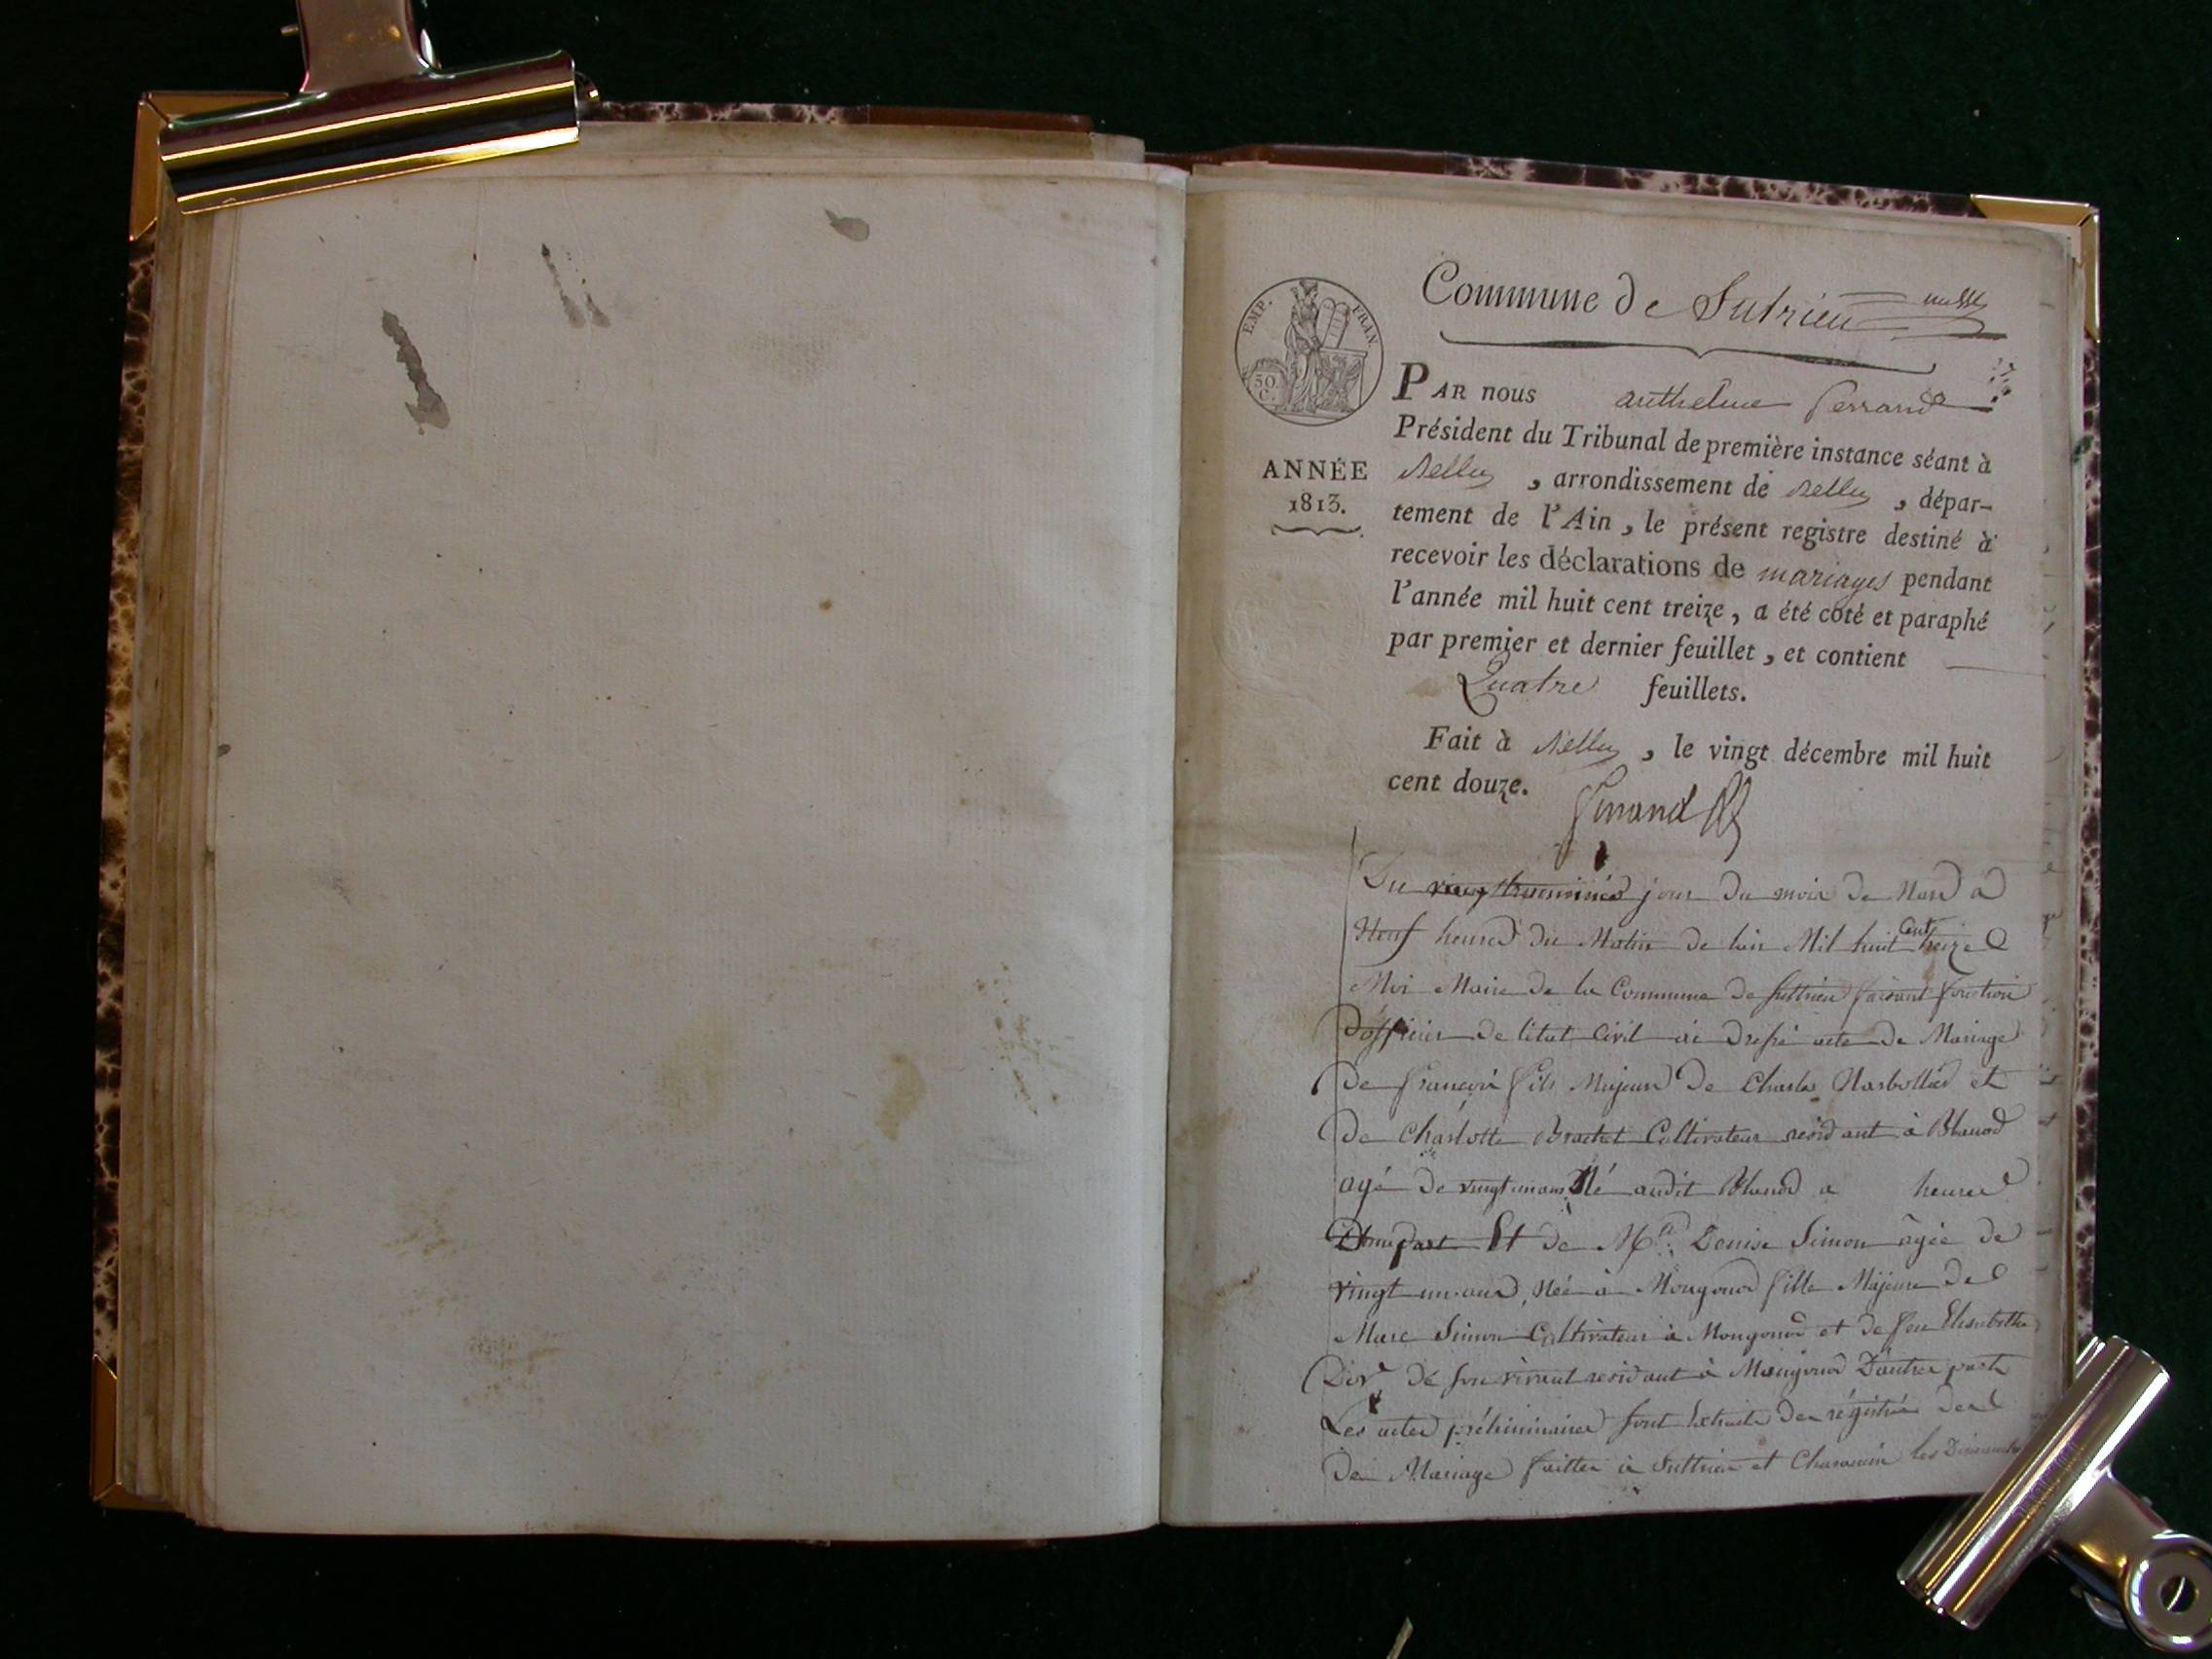 Commune de Sutrieu
EMP. FRAN.
50.
C.
PAR nous anthelme ferrand
Président du Tribunal de première instance séant à
ANNÉE
1813.
Belley , arrondissement de Belley , dépar-
tement de l'Ain , le présent registre destiné à
recevoir les déclarations de mariages pendant
l'année mil huit cent treize , a été coté et paraphé
par premier et dernier feuillet , et contient
Quatre feuillets.
Fait à Belley , le vingt décembre mil huit
cent douze.
ferrand
Du jour du mois de Mars a
Neuf heures du Matin de lan Mil huit Cent treize
Moi Maire de la Commune de Suttrieu faisant fonction
d'officier de létat Civil ai dressé acte de Mariage
de françois fils Majeur de Charles et
de Charlotte Brachet Cultivateur residant à
agé de vingt un ans Né audit a heures
D'une part Et de Mie Louise Simon âgée de
vingt un ans, Née à Mongonod fille Majeure de
Marc Simon Cultivateur à Mongonod et de feu Elisabeth
de son vivant residant à Mongonod D'autre part
Les actes préliminaires sont Extraits des régistres des
de Mariage faittes à Suttrieu et les Dimanches